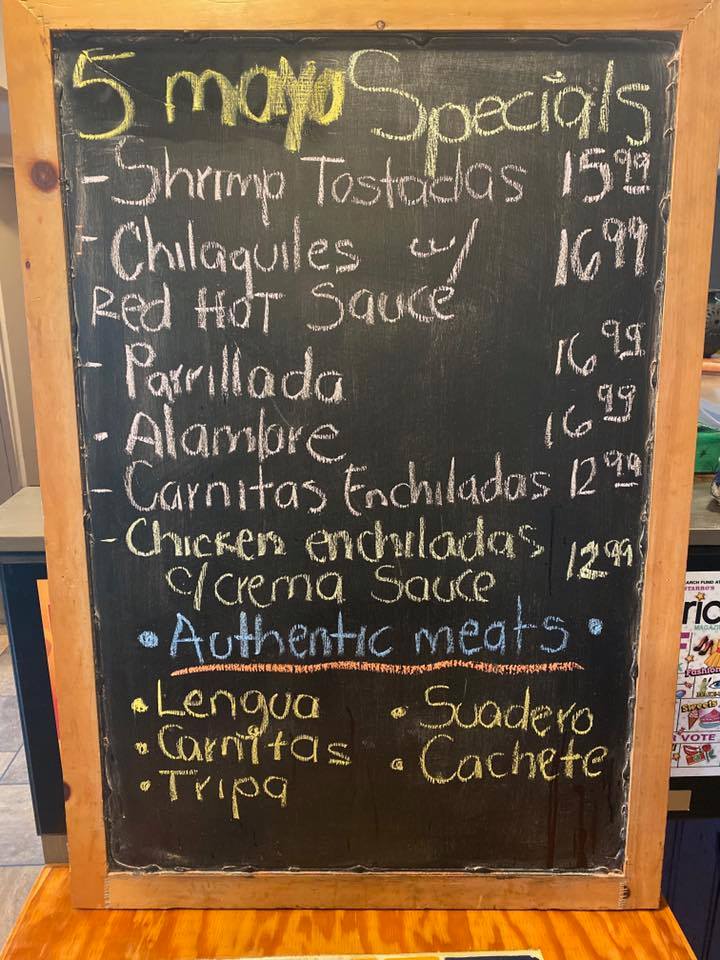 5 mayo Specials
- Shrimp Tostadas 15 99
- Chilaquiles w/ 16 99
Red Hot Sauce
- Parrillada 16 99
- Alambre 16 99
- Carnitas Enchiladas 12 99
- Chicken enchiladas 12 99
c/crema Sauce
• Authentic meats •
• Lengua • Suadero
• Carnitas • Cachete
• Tripa
MAGAZI
Fashion
Sweets
VOTE